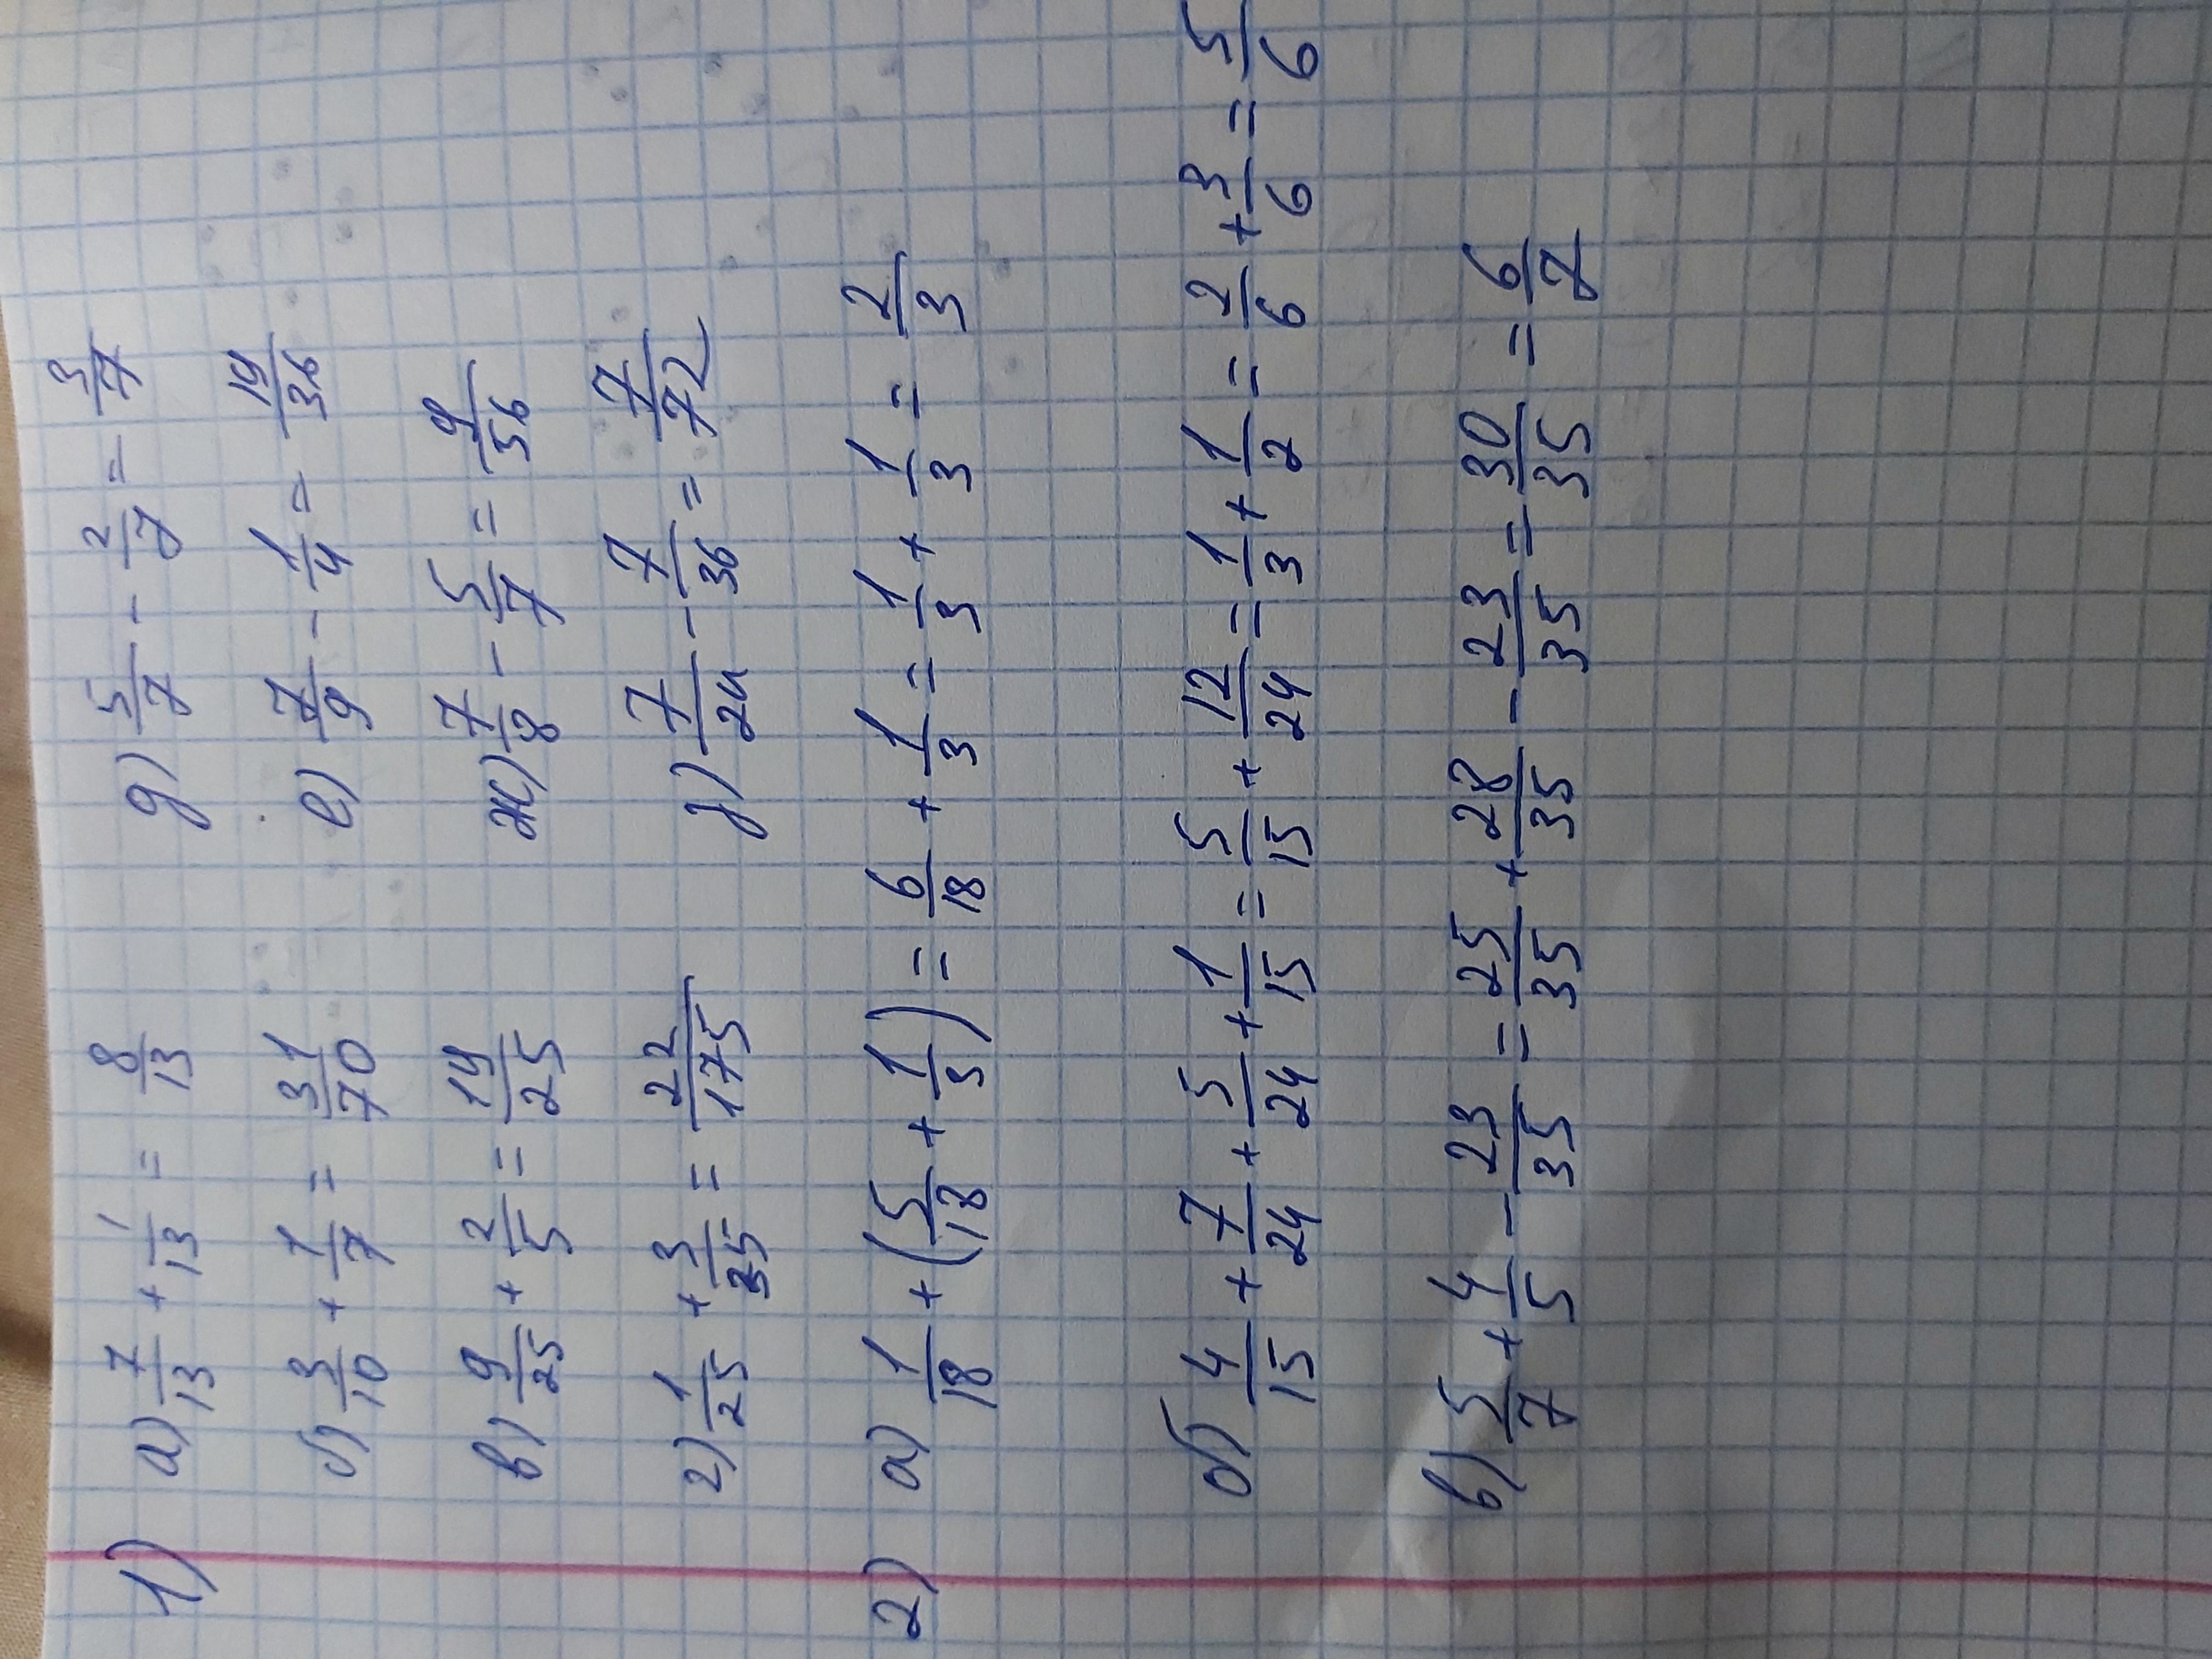 1) а) 7/13 + 1/13 = 8/13 д) 5/7 - 2/7 = 3/7
б) 3/10 + 1/7 = 31/70 е) 7/9 - 1/4 = 19/36
в) 9/25 + 2/5 = 19/25 ж) 7/8 - 5/7 = 9/56
г) 1/25 + 3/35 = 22/175 з) 7/24 - 7/36 = 7/72
2) а) 1/18 + (5/18 + 1/3) = 6/18 + 1/3 = 1/3 + 1/3 = 2/3
б) 4/15 + 7/24 + 5/24 + 1/15 = 5/15 + 12/24 = 1/3 + 1/2 = 2/6 + 3/6 = 5/6
в) 5/7 + 4/5 - 23/35 = 25/35 + 28/35 - 23/35 = 30/35 = 6/7